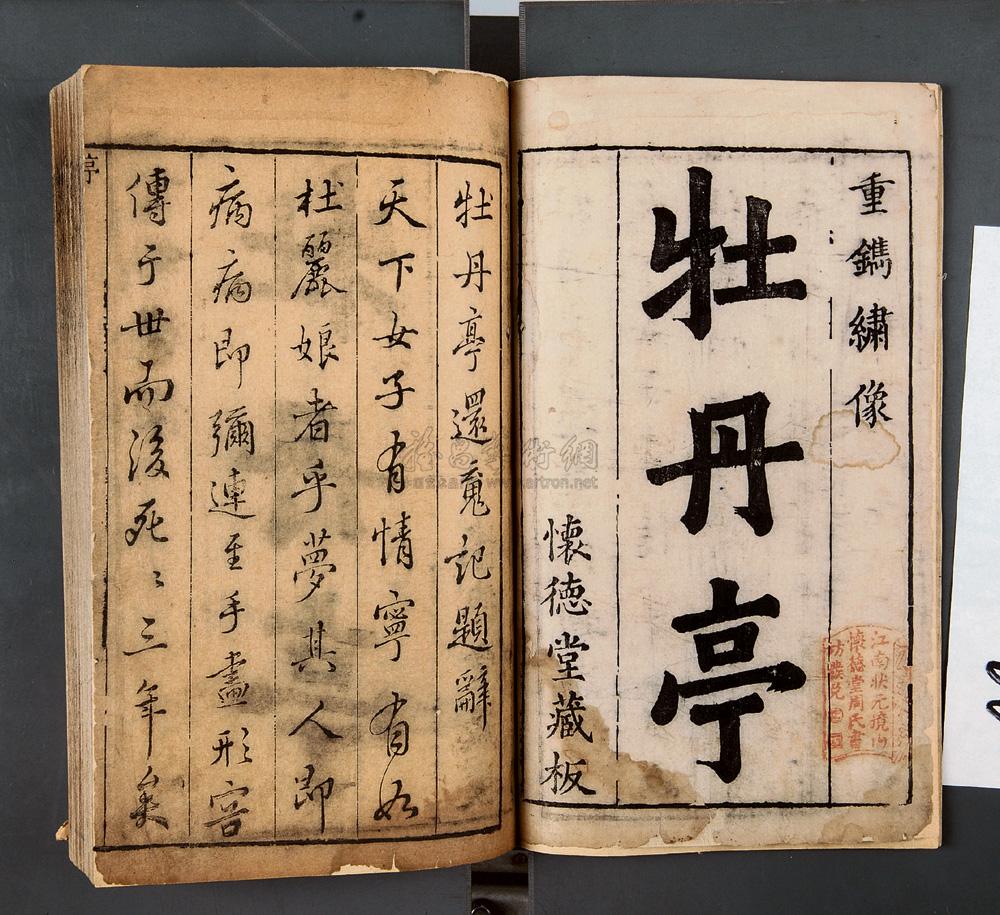 重鐫繡像
牡丹亭
懷德堂藏板
江南狀元境內
懷德堂周氏書
牡丹亭還魂記題辭
天下女子有情寧有如
杜麗娘者乎夢其人即
病病即彌連至手畫形容
傳于世而後死〻三年矣
亭
www.artron.net